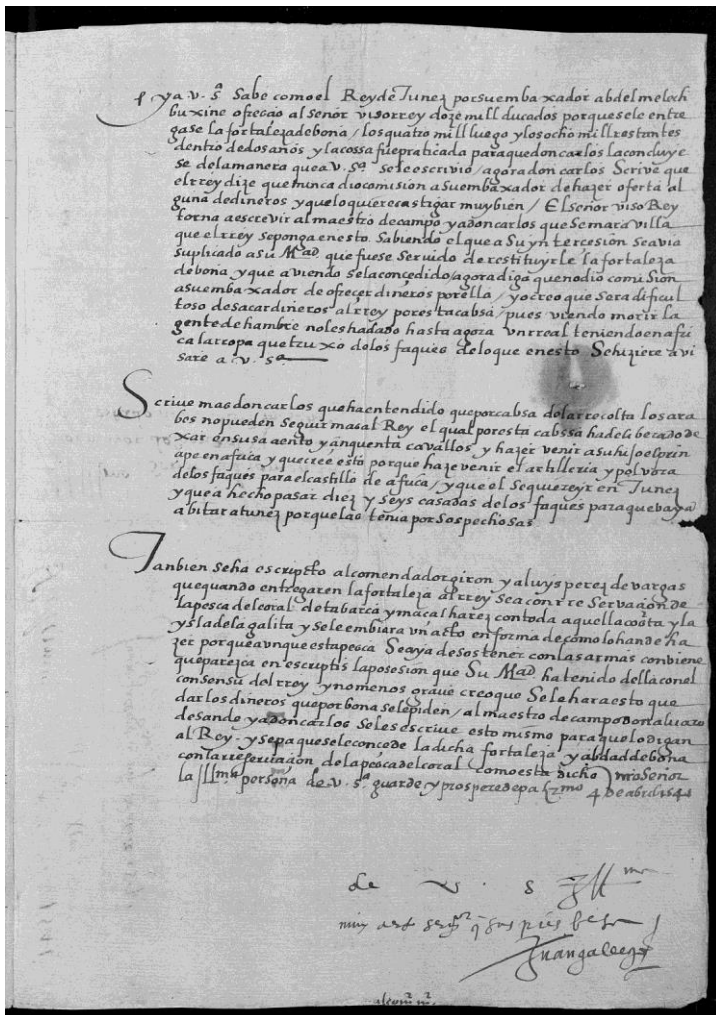 ya v. sª Sabe como el Rey de Tunez por su embaxador abdelmelech
buxine ofrecio al Señor visorrey doze mill ducados porque se le entre
gase la fortaleza de bona / los quatro mill luego y los ocho mill restantes
dentro de dos años y la cossa fue praticada para que don carlos la concluye
se de la manera que a v. sª se le escrivio / agora don carlos Scrive que
el rrey dize que nunca dio comision a su embaxador de hazer oferta al
guna de dineros y que lo quiere castigar muy bien / El señor viso Rey
torna a escrevir al maestro de campo y a don carlos que Se maravilla
que el rrey se ponga en esto Sabiendo el que a Su yntercesion se avia
suplicado a su Mad que fuese Servido de restituyrle la fortaleza
de bona y que aviendosela concedido / agora diga que no dio comision
a su embaxador de ofrecer dineros por ella / yo creo que sera dificul
toso de sacar dineros al rrey por esta cabsa / pues viendo morir la
gente de hambre no les ha dado hasta agora un rreal teniendo en afri
ca la rropa que truxo de los faques de lo que en esto Se hiziere avi
sare a v. sª
Scrive mas don carlos que ha entendido que por cabsa de la rrecolta los ara
bes no pueden Seguir mas al Rey el qual por esta cabssa ha deliberado de
xar en susa ciento y cinquenta cavallos y hazer venir a su hijo el prin
cipe en africa y que cree esto porque haze venir el artilleria y polvora
de los faques para el castillo de africa / y que el Se quiere yr en Tunez
y que a hecho pasar diez y seys casadas de los faques para que vayan
a bitar a tunez porque las tenia por sospechosas
Tanbien se ha escripto al comendador giron y a luys perez de vargas
que quando entregaren la fortaleza al rrey sea con rreservacion de
la pesca del coral de tabarca y macalharez con toda aquella costa y la
ysla de la galita y se le embiara un acto en forma de como lo han de ha
zer porque aunque esta pesca Se aya de sostener con las armas conviene
que parezca en escriptis la posesion que Su Mad ha tenido della con el
consensu del rrey y no menos grave creo que Se le hara esto que
dar los dineros que por bona se le piden / al maestro de campo don alvaro
de sande y a don carlos Se les escrive esto mismo para que lo digan
al Rey y sepa que se le concede la dicha fortaleza y cibdad de bona
con la rreservacion de la pesca del coral como esta dicho nro Señor
la Illma persona de v. sª guarde y prospere de pa 4 de abril 1544
de v. s Illma
muy seror q sus pies besa
Juan gallego